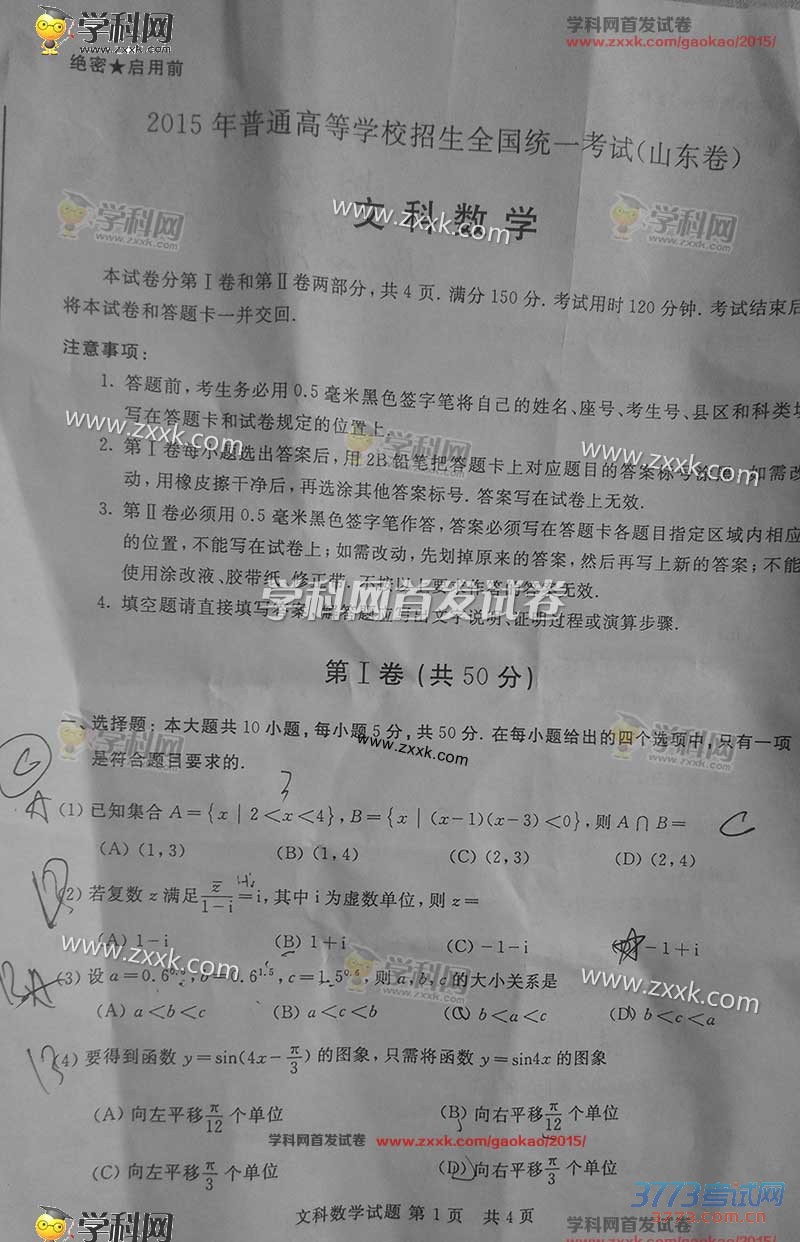 学科网
www.zxxk.com
学科网首发试卷
www.zxxk.com/gaokao/2015/
绝密★启用前
2015年普通高等学校招生全国统一考试(山东卷)
学科网
www.zxxk.com
www.zxxk.com
学科网
www.zxxk.com
文科数学
本试卷分第Ⅰ卷和第Ⅱ卷两部分,共4页.满分150分.考试用时120分钟.考试结束后
将本试卷和答题卡一并交回.
注意事项:
1. 答题前,考生务必用0.5毫米黑色签字笔将自己的姓名、座号、考生号、县区和科类填
写在答题卡和试卷规定的位置上.
www.zxxk.com
学科网
www.zxxk.com
2. 第Ⅰ卷每小题选出答案后,用2B铅笔把答题卡上对应题目的答案标号涂黑.如需改
动,用橡皮擦干净后,再选涂其他答案标号.答案写在试卷上无效.
3. 第Ⅱ卷必须用0.5毫米黑色签字笔作答,答案必须写在答题卡各题目指定区域内相应
的位置,不能写在试卷上;如需改动,先划掉原来的答案,然后再写上新的答案;不能
使用涂改液、胶带纸、修正带.不按以上要求作答的答案无效.
学科网首发试卷
4. 填空题请直接填写答案,解答题应写出文字说明、证明过程或演算步骤.
第Ⅰ卷(共50分)
一、选择题:本大题共10小题,每小题5分,共50分.在每小题给出的四个选项中,只有一项
是符合题目要求的.
www.zxxk.com
学科网
3
A (1) 已知集合 A={x | 2<x<4},B={x | (x-1)(x-3)<0},则 A∩B= C
(A) (1,3) (B) (1,4) (C) (2,3) (D) (2,4)
(2) 若复数 z 满足 z̅/(1-i)=i,其中 i 为虚数单位,则 z=
(A) 1-i (B) 1+i (C) -1-i -1+i
www.zxxk.com
学科网
www.zxxk.com
(3) 设 a=0.6^0.6,b=0.6^1.5,c=1.5^0.6,则 a,b,c 的大小关系是
(A) a<b<c (B) a<c<b (C) b<a<c (D) b<c<a
(4) 要得到函数 y=sin(4x-π/3) 的图象,只需将函数 y=sin4x 的图象
(A) 向左平移 π/12 个单位 (B) 向右平移 π/12 个单位
学科网首发试卷 www.zxxk.com/gaokao/2015/
(C) 向左平移 π/3 个单位 (D) 向右平移 π/3 个单位
文科数学试题 第1页 共4页
3773考试网
学科网
www.zxxk.com
学科网首发试卷
www.zxxk.com/gaokao/2015/